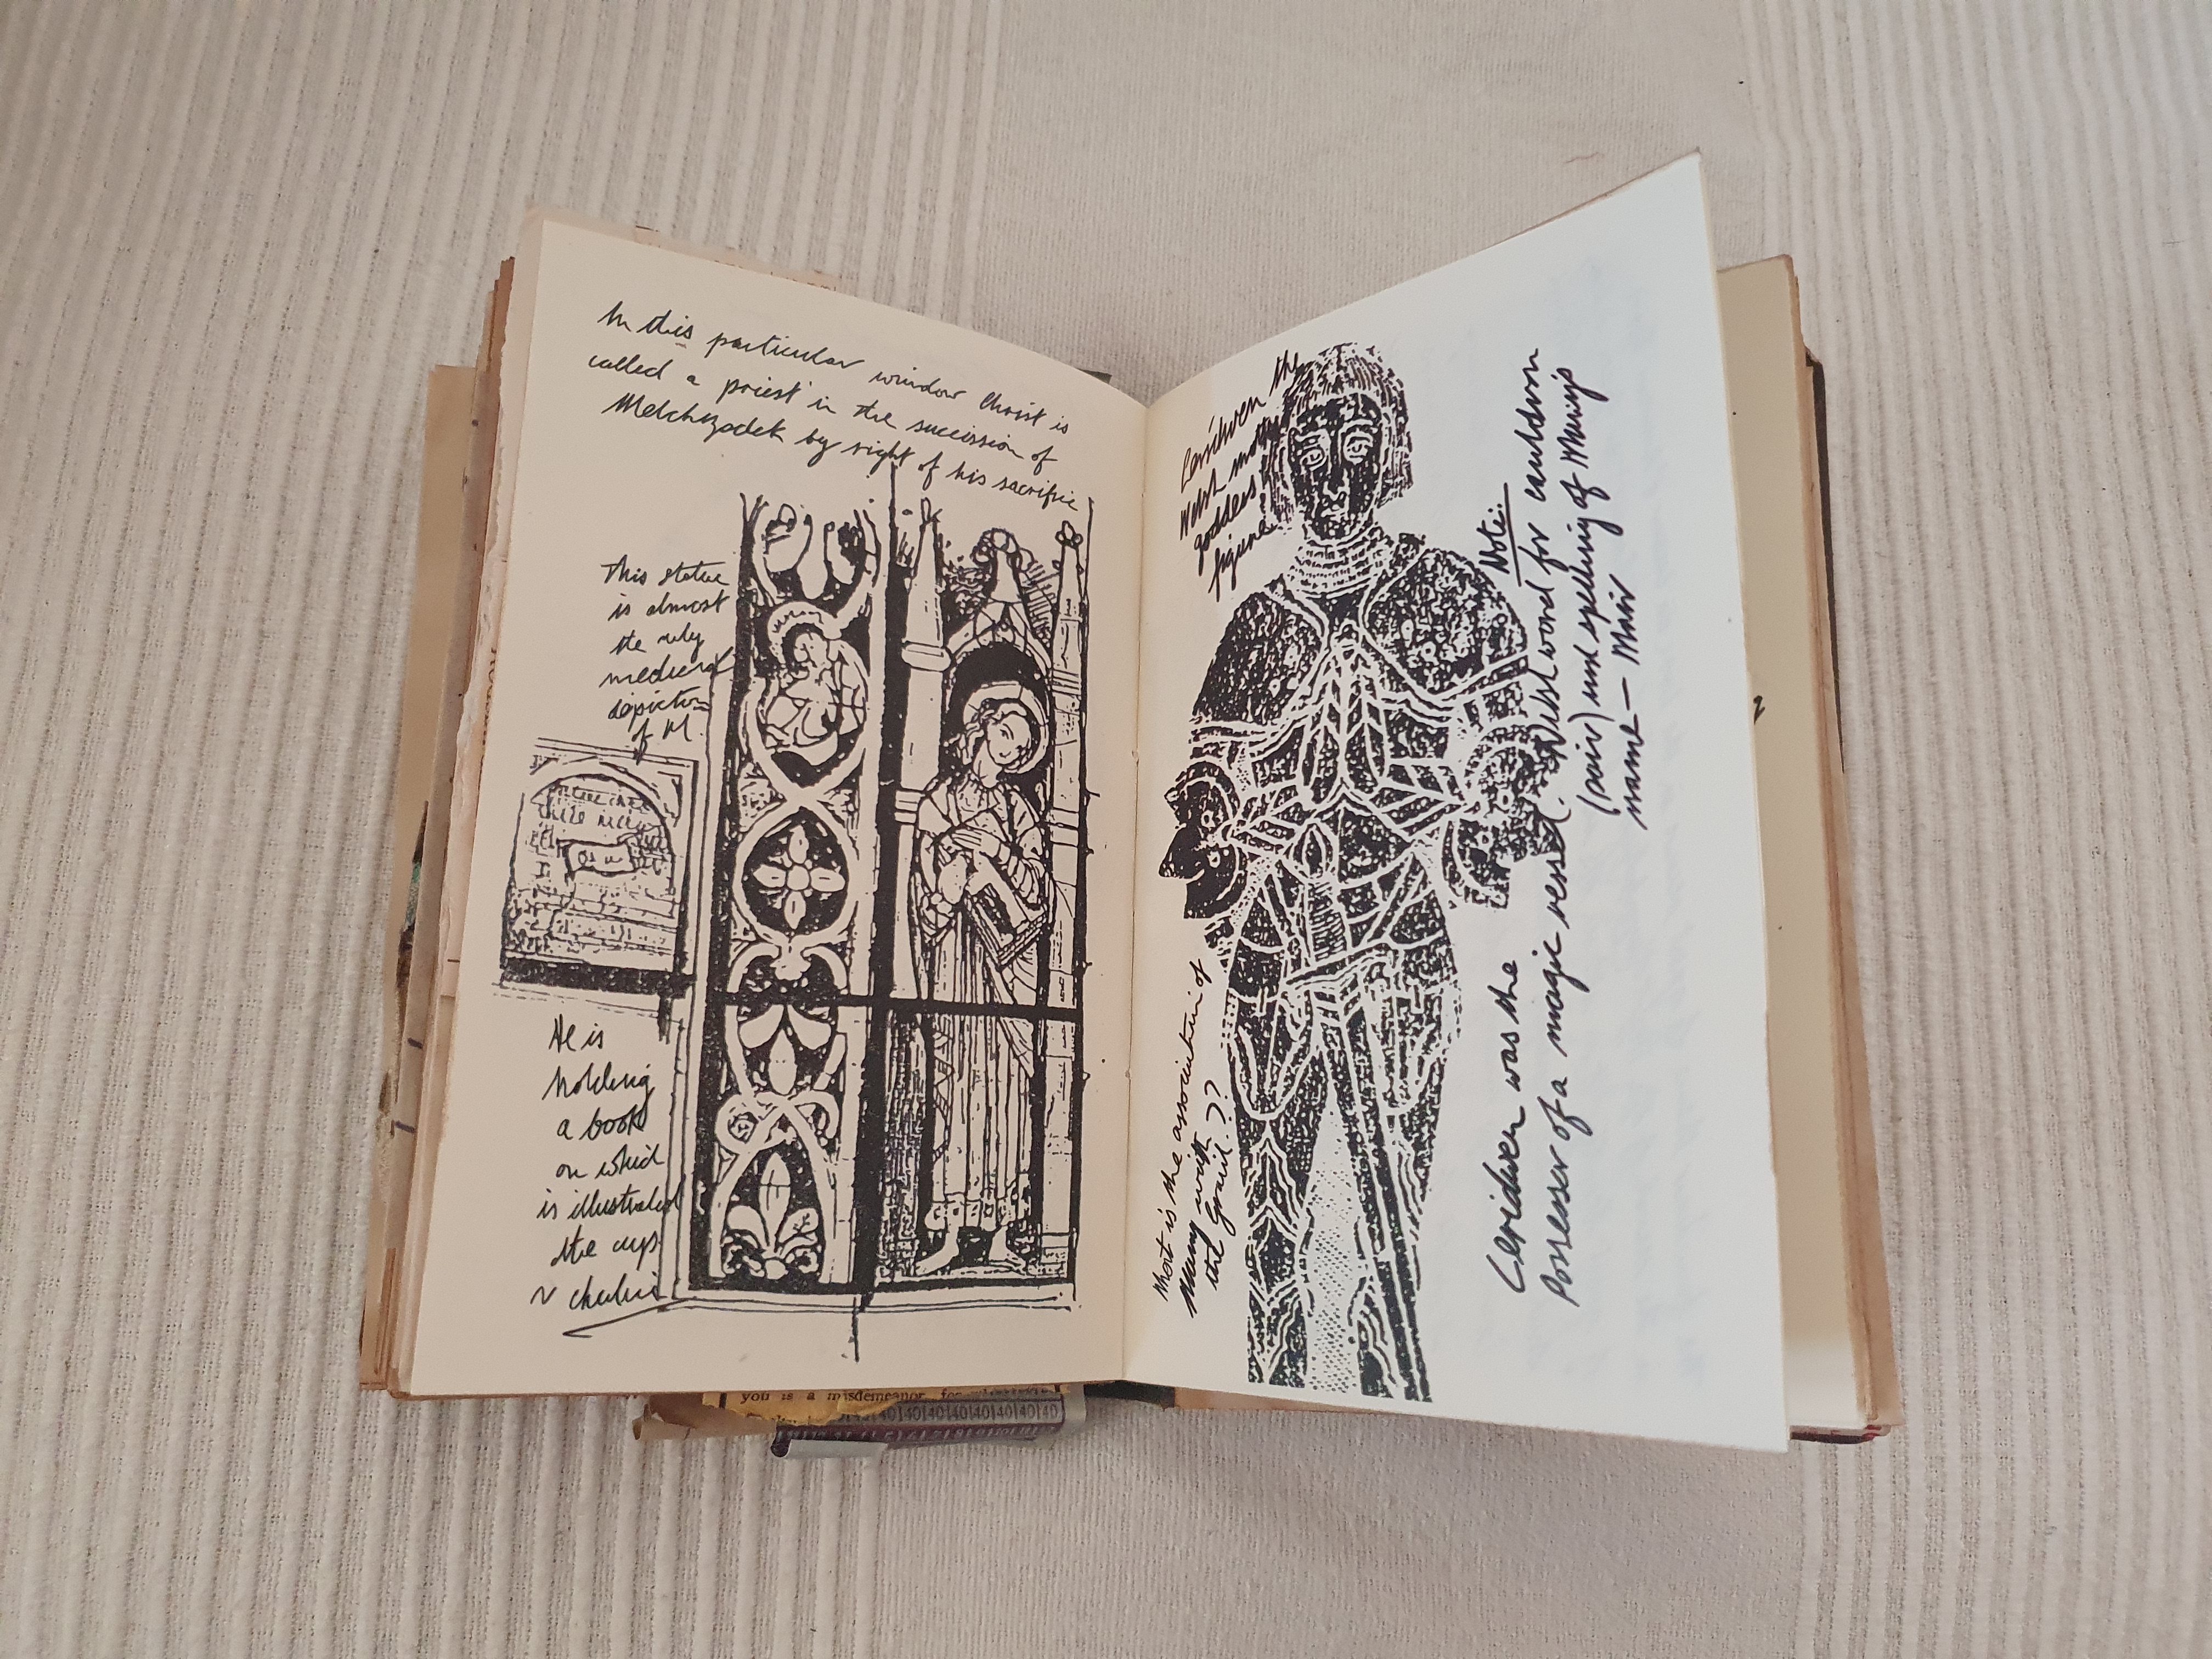 In this particular window Christ is
called a priest in the succission of
Melchizadek by right of his sacrifice
This statue
is almost
the only
medieval
depiction
of M.
He is
holding
a book
on which
is illustrated
the cup
or chalice
Ceridwen the
Welsh mother
goddess
figure
What is the association of
Mary with
the Grail??
Ceridwen was the
Possesser of a magic vessel.
Note:
Welsh word for cauldron
(pair) and spelling of Mary's
name — Mair
you is a misdemeanor for
40 40 40 40 40 40 40 40